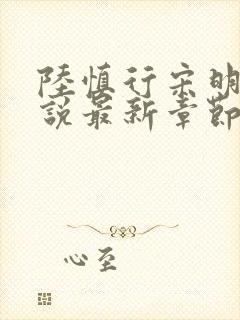 陸慎行宋明
說最新章節
心至